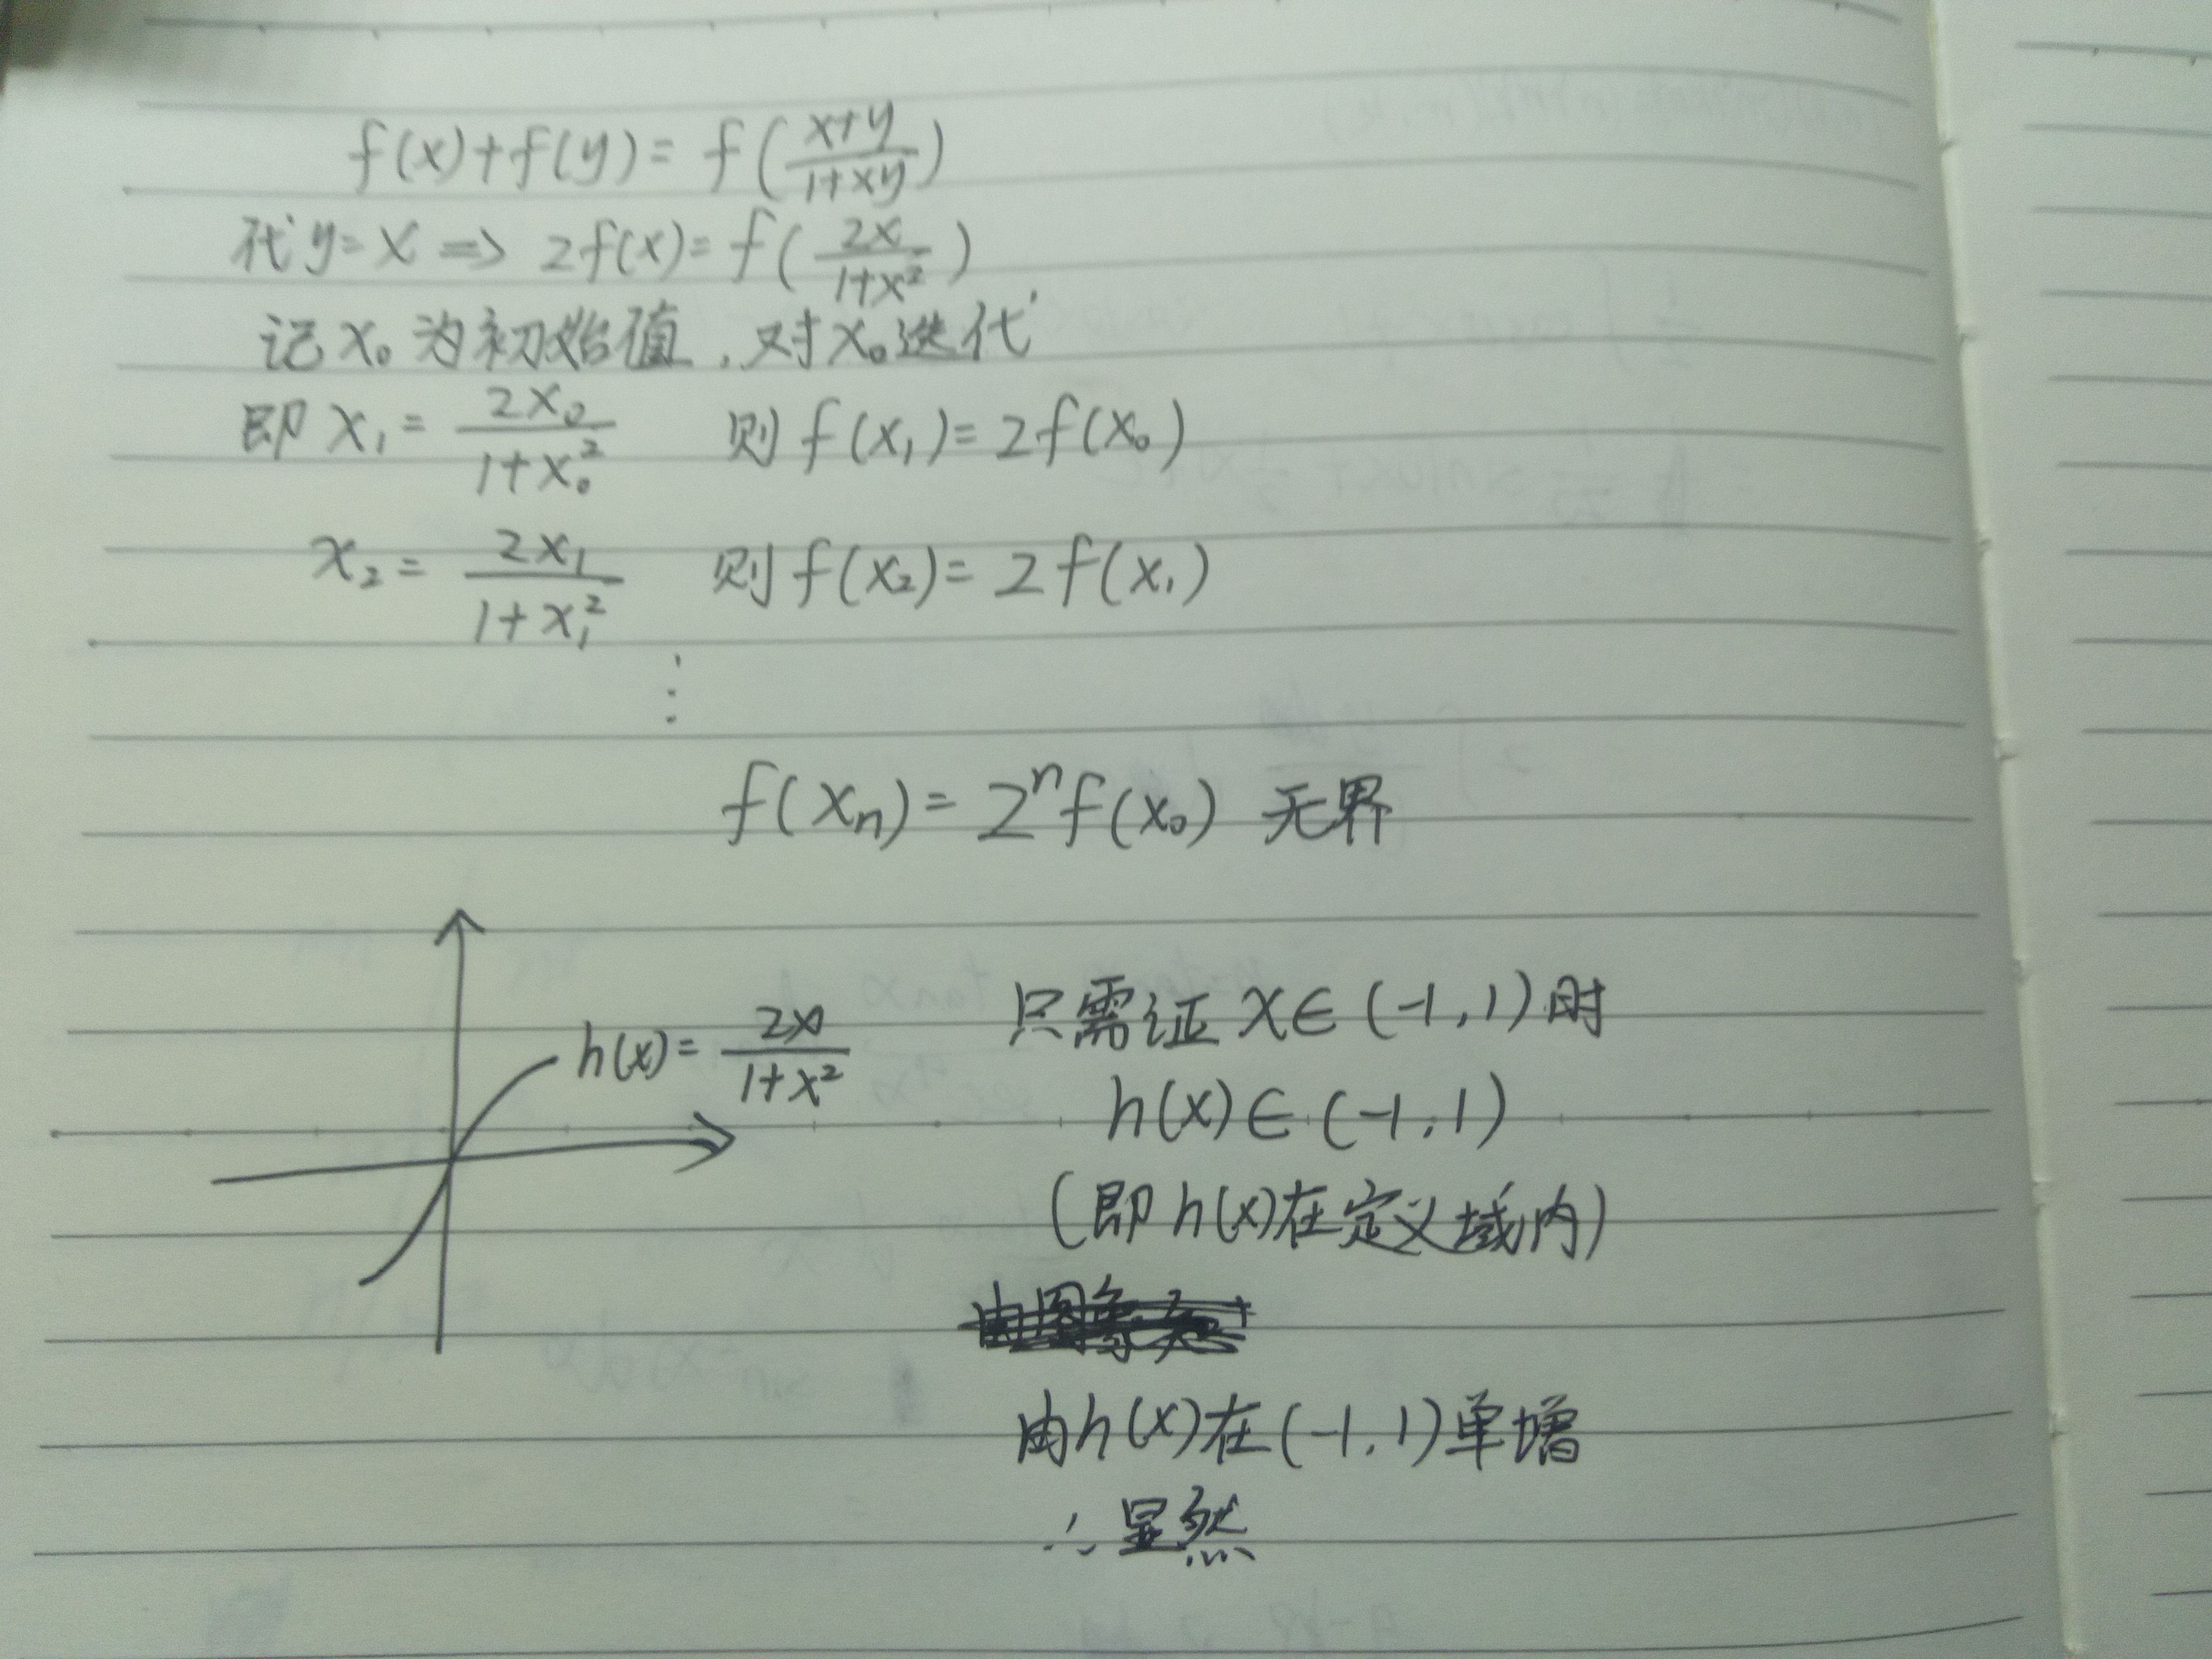 f(x)+f(y)= f(\frac{x+y}{1+xy})
代y=x ⇒ 2f(x)=f(\frac{2x}{1+x^2})
记x₀为初始值,对x₀迭代
即 x₁= \frac{2x₀}{1+x₀^2} 则 f(x₁)=2f(x₀)
x₂= \frac{2x₁}{1+x₁^2} 则 f(x₂)=2f(x₁)
⋮
f(xₙ)= 2ⁿf(x₀) 无界
h(x)= \frac{2x}{1+x^2}
只需证 x∈(-1,1)时
h(x)∈(-1,1)
(即h(x)在定义域内)
由h(x)在(-1,1)单增
∴显然